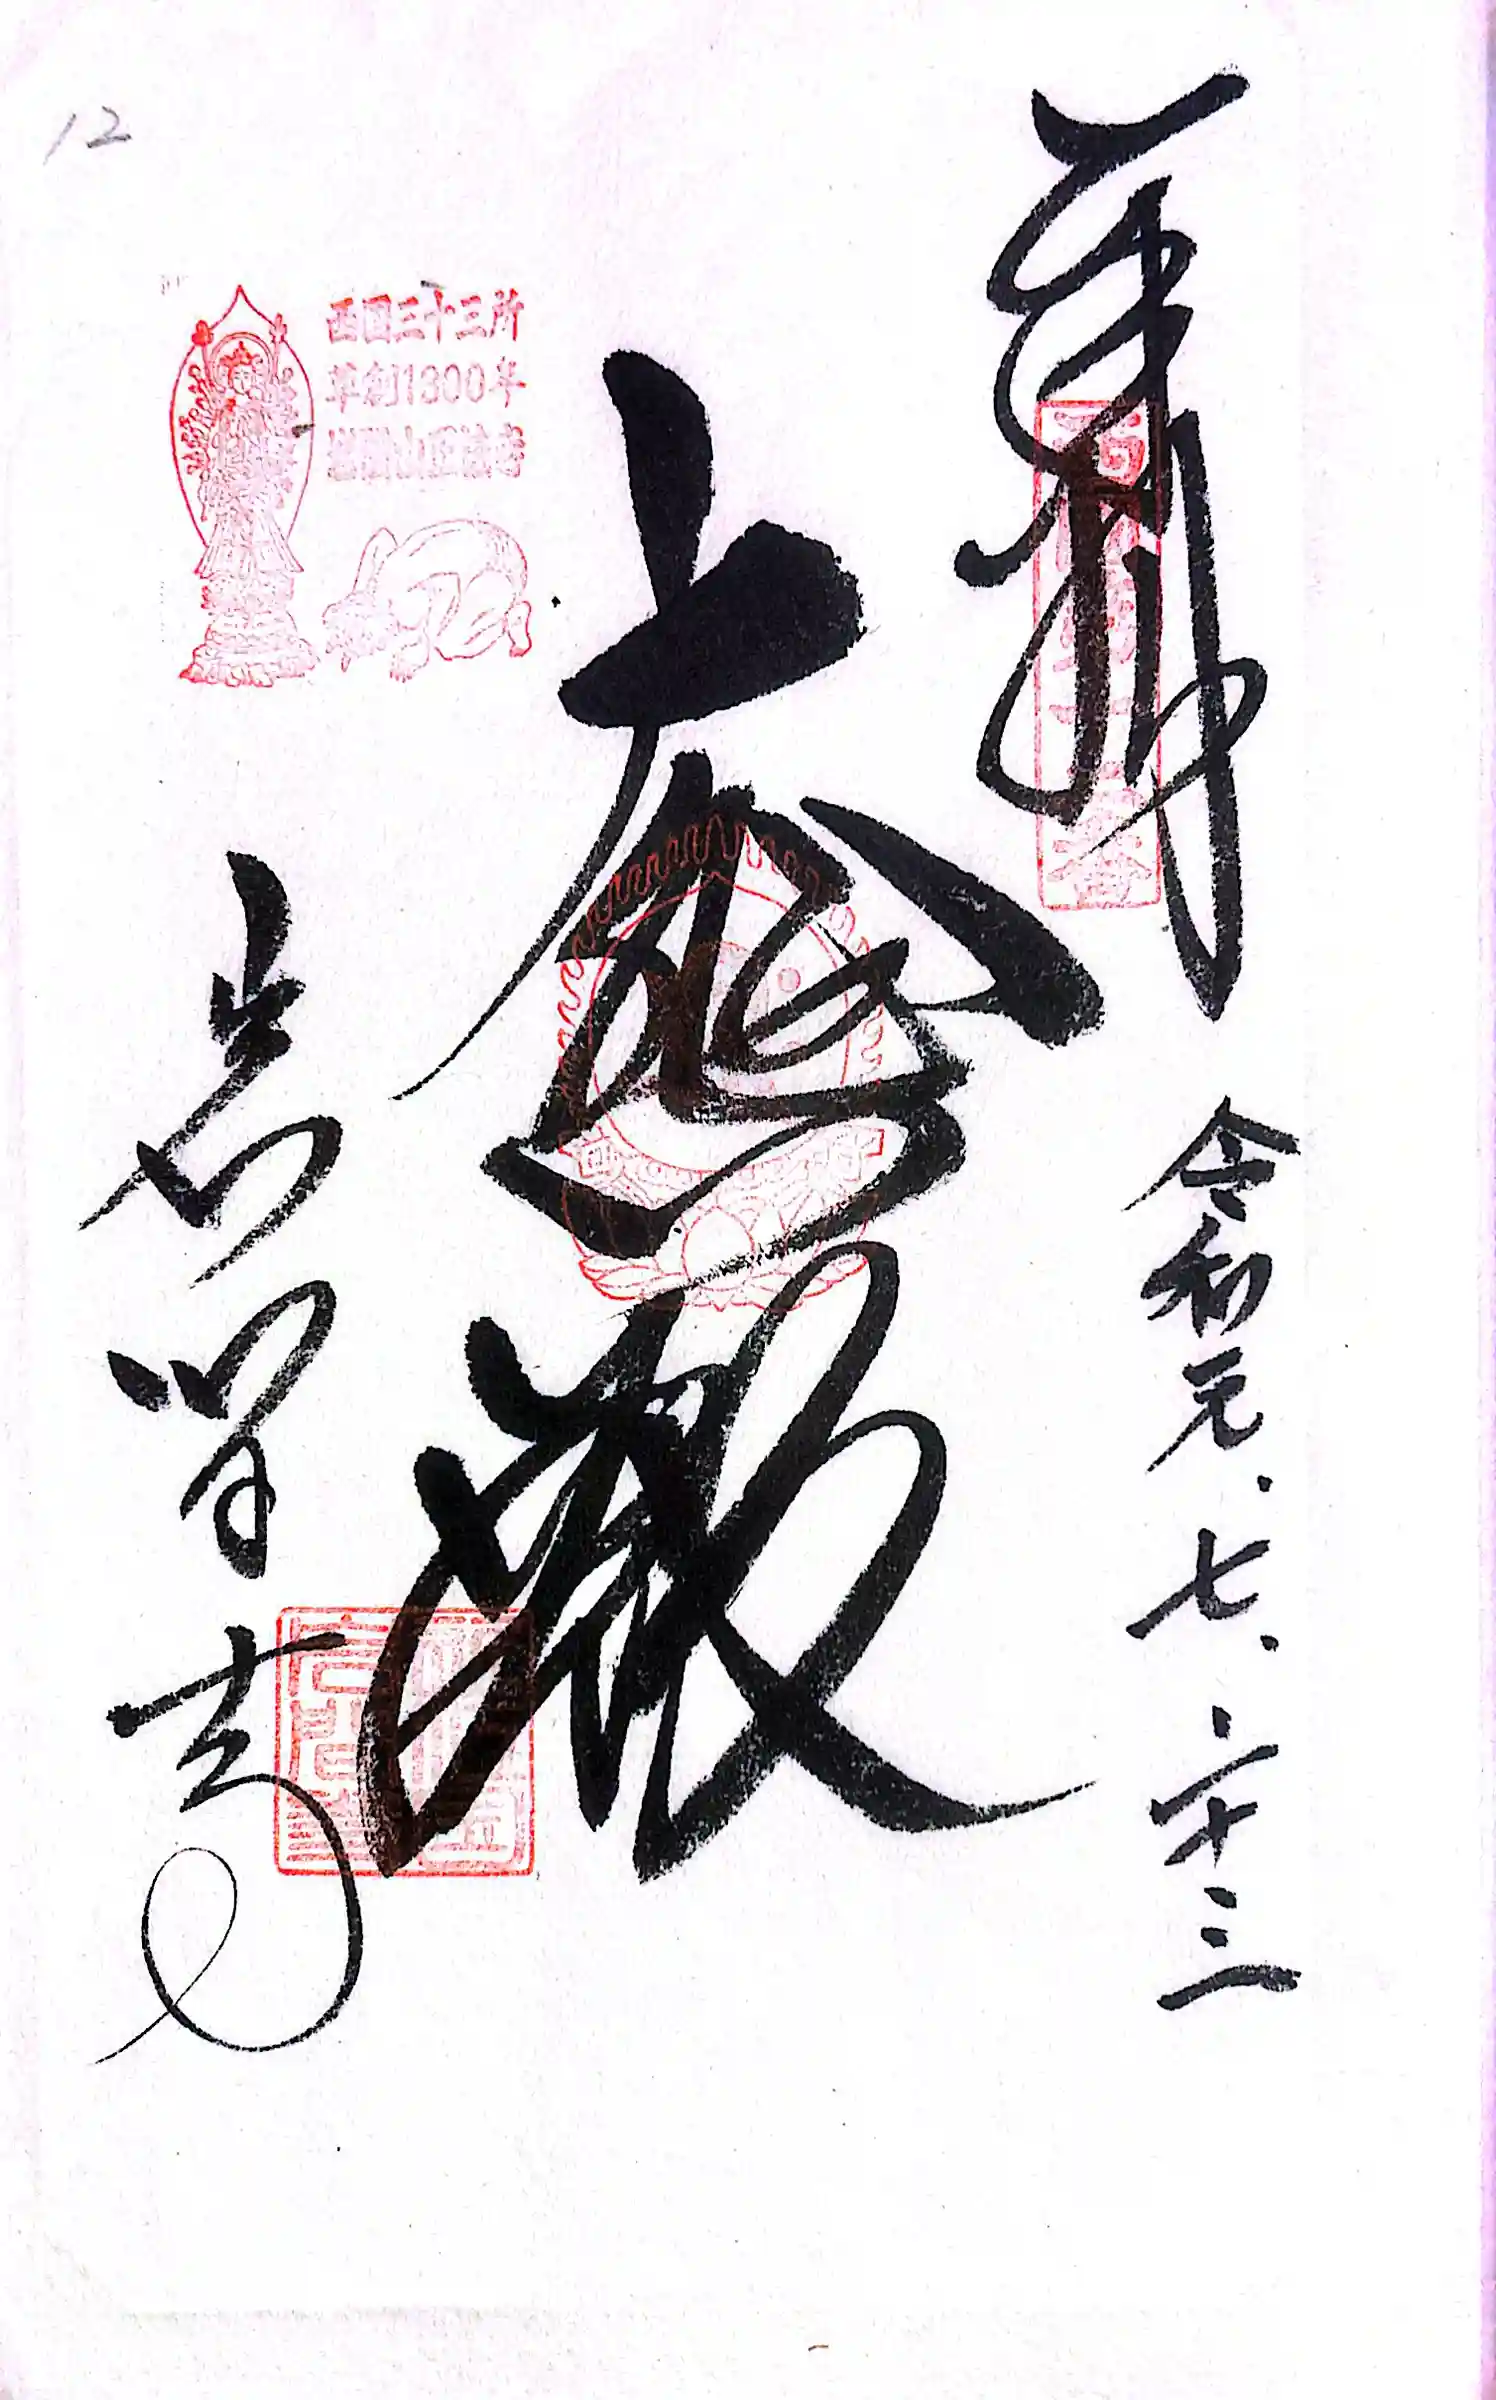 奉拝
西国第十二番
令和元.七.二十三
大悲殿
西国三十三所
草創1300年
岩間山正法寺
岩間寺
12